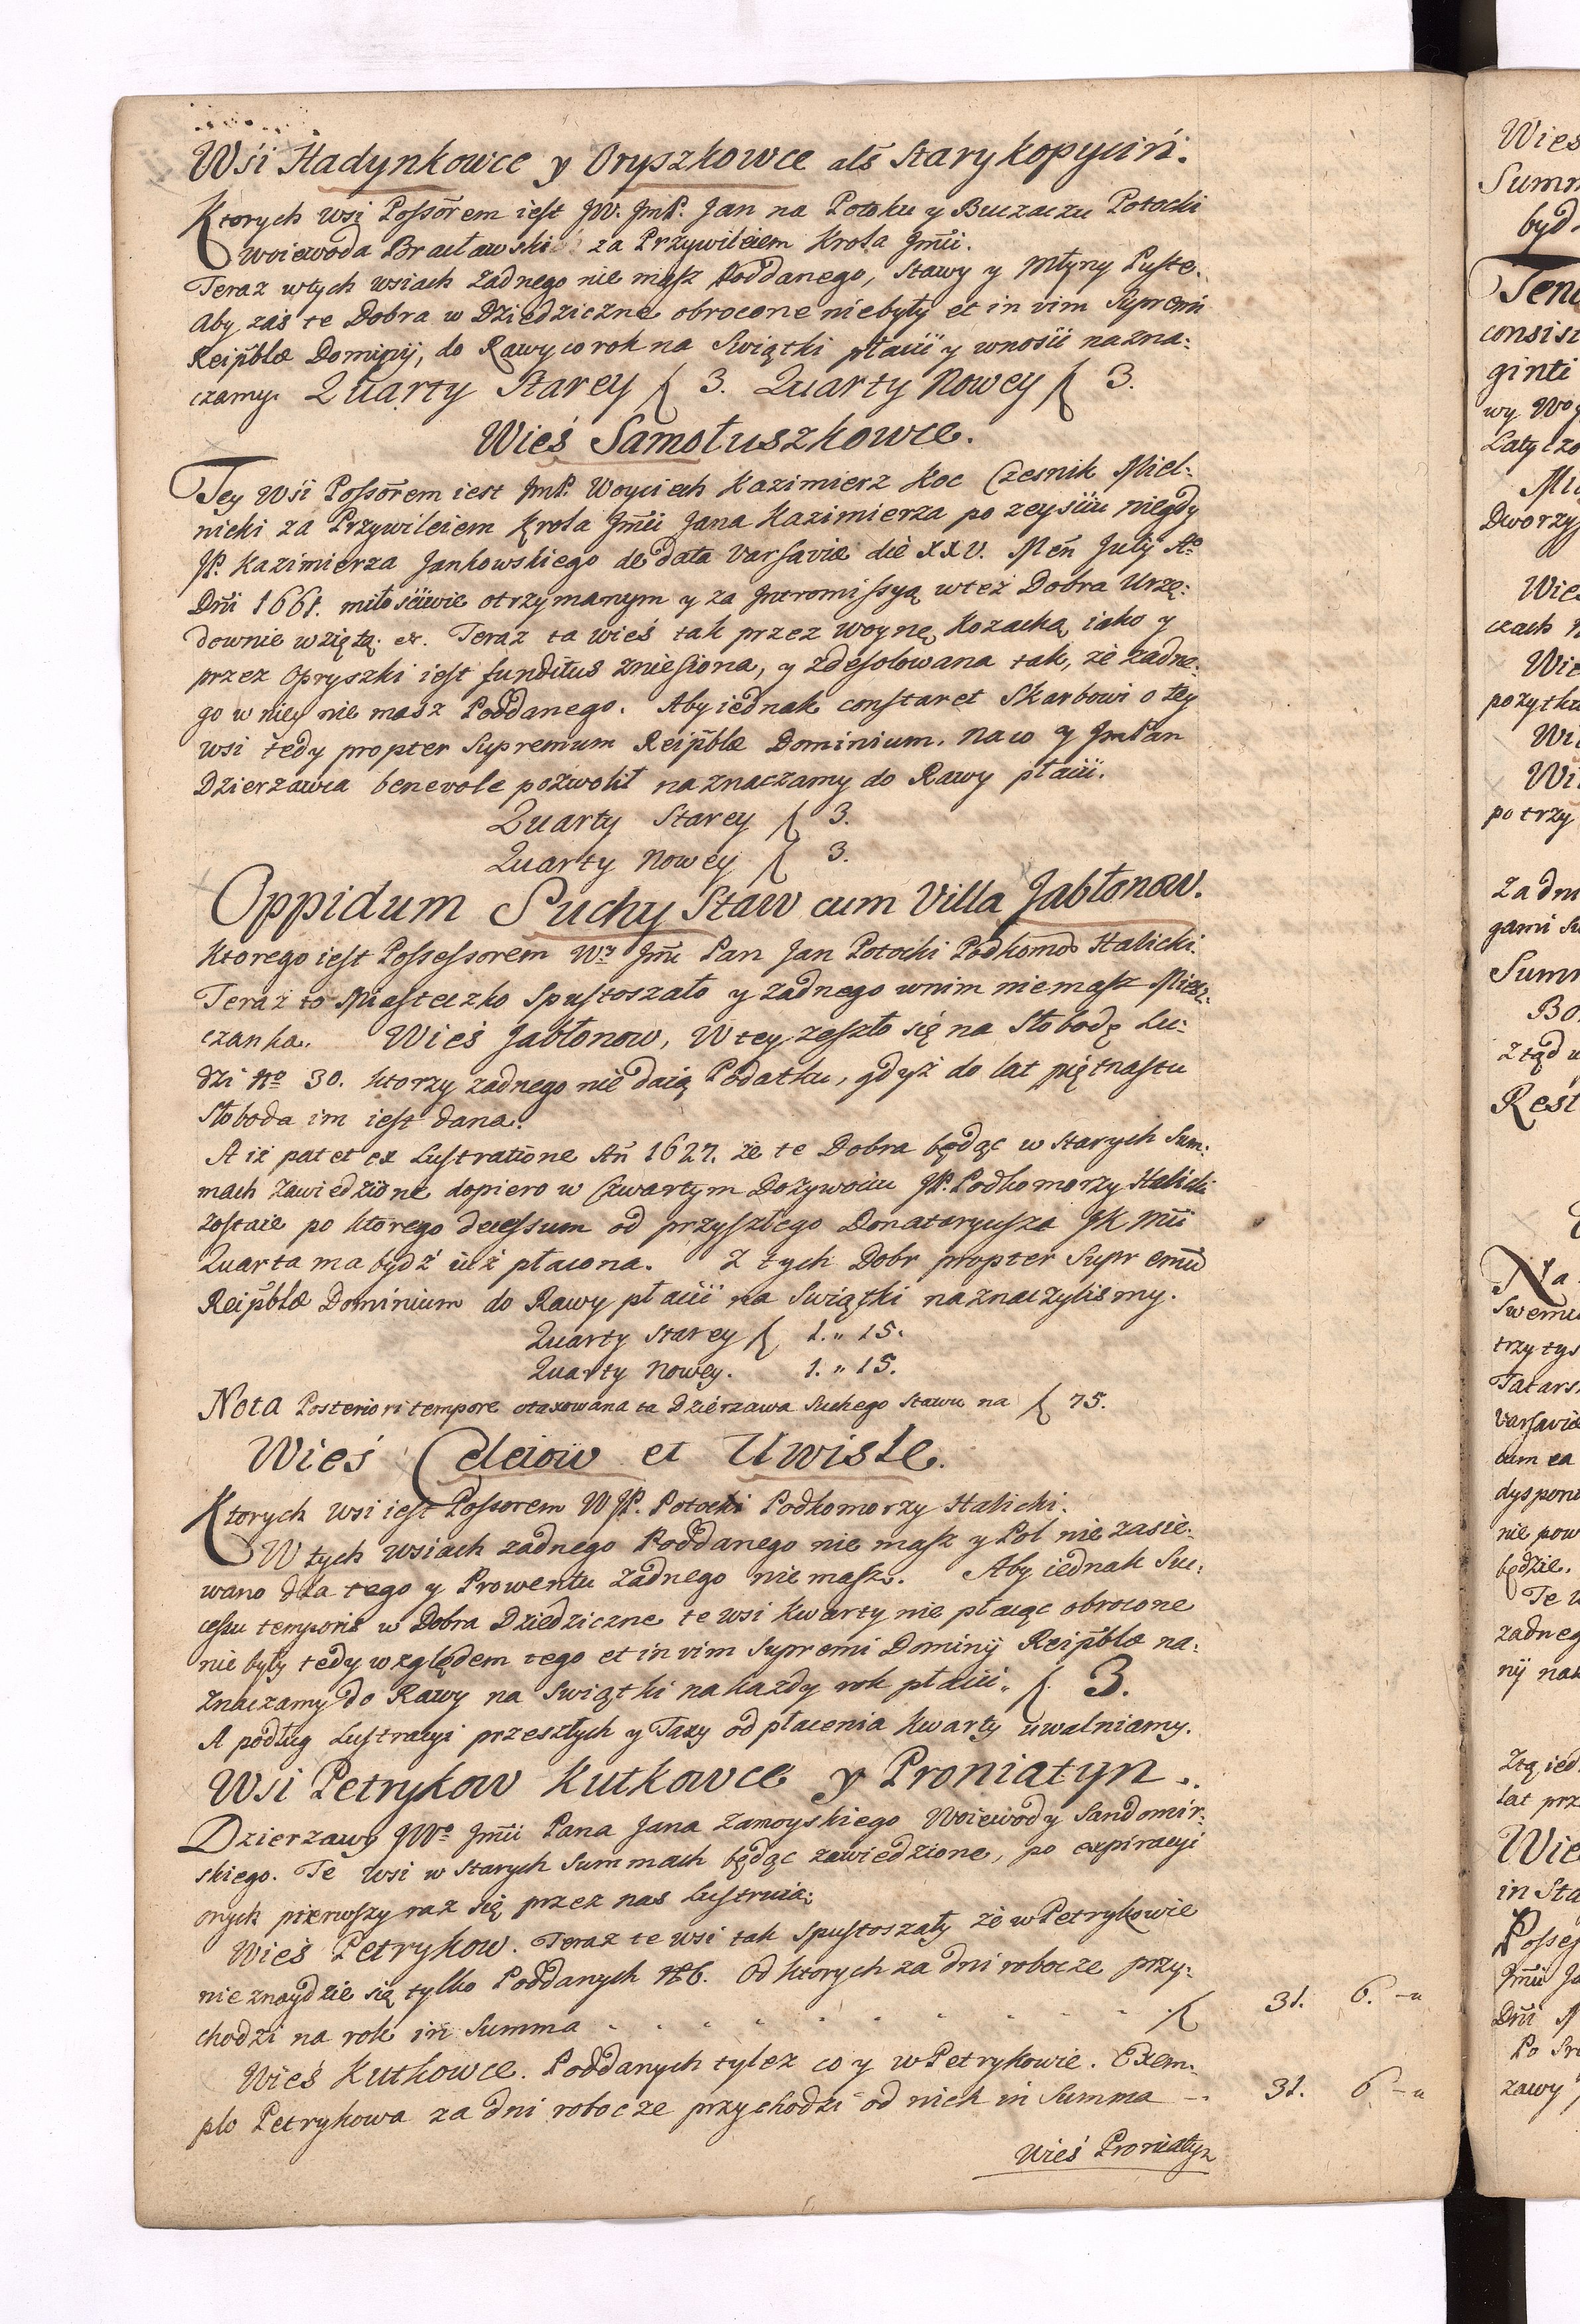 Wśi Hadynkowce y Oryszkowce als Starykopyciń.
Ktorych wsi Possorem iest JW. JmP. Jan na Potoku y Buczaczu Potocki
Woiewoda Bracławski za Przywileiem Krola Jmci.
Teraz wtych wsiach żadnego nie masz Poddanego, Stawy y Młyny Puste.
Aby zaś te Dobra w Dziedziczne obrocone niebyły et in vim Supremi
Reipblæ Dominij, do Rawy co rok na Swiątki płacić y wnosić nazna:
czamy. Quarty Starey f 3. Quarty Nowey f 3.
Wieś Samołuszkowce.
Tey Wśi Possorem iest JmP. Woyciech Kazimierz Koc Czesnik Miel:
nicki za Przywileiem Krola Jmci Jana Kazimierza po zeysciu niegdy
JP. Kazimierza Jankowskiego de data Varsaviæ die XXV. Men Julij Ao
Dni 1661. miłościwie otrzymanym y za Intromissyą wteż Dobra Urzę:
downie wziętą. etc. Teraz ta wieś tak przez woynę Kozacką iako y
przez Opryszki iest funditus zniesiona, y zdesolowana tak, że żadne:
go w niey nie masz Poddanego. Aby iednak constaret Skarbowi o tey
wsi tedy propter Supremum Reipblæ Dominium. na co y JmPan
Dzierżawca benevole pozwolił naznaczamy do Rawy płacić.
Quarty Starey f 3.
Quarty Nowey f 3.
Oppidum Suchy Staw cum Villa Jabłonow.
Ktorego iest Possessorem Wy Jmc Pan Jan Potocki Podkomo Halicki.
Teraz to Miasteczko Spustoszało y żadnego wnim niemasz Miesz:
czanka. Wieś Jabłonow, W tey zeszło się na Słobodę Lu:
dzi No 30. ktorzy żadnego nie daią Podatku, gdyż do lat piętnastu
Słoboda im iest dana.
A iż patet ex Lustratione An 1627. że te Dobra będąc w Starych Sum:
mach zawiedzione dopiero w Czwartym Dożywociu JP. Podkomorzy Halicki
zostaie po ktorego decessum od przyszłego Donataryusza JK Mci
Quarta ma bydź iuż płacona. Z tych Dobr propter Supremu
Reipblæ Dominium do Rawy płacić na Swiątki naznaczylismy.
Quarty Starey f 1. „ 15.
Quarty Nowey. 1. „ 15.
Nota Posteriori tempore otaxowana ta Dzierżawa Suchego Stawu na f 75.
Wieś Celeiow et Uwisle.
Ktorych wsi iest Possorem WJP. Potocki Podkomorzy Halicki.
W tych wsiach żadnego Poddanego nie masz y Pol nie zasie:
wano dla tego y Prowentu żadnego nie masz. Aby iednak Suc:
cessu temporis w Dobra Dziedziczne te wsi kwarty nie płacąc obrocone
nie były tedy względem tego et in vim Supremi Dominij Reipblæ na:
znaczamy do Rawy na Swiątki na każdy rok płacić. f. 3.
A podług Lustracyi przeszłych y Taxy od płacenia kwarty uwalniamy.
Wsi Petrykow Kutkowce y Proniatyn.
Dzierżawy JWo Jmci Pana Jana Zamoyskiego Woiewody Sandomir:
skiego. Te wsi w Starych Summach będąc zawiedzione, po expiracyi
onych pierwszy raz się przez nas Lustruią.
Wieś Petrykow. Teraz te wsi tak spustoszały że w Petrykowie
nie znaydzie się tylko Poddanych No 6. Od ktorych za dni robocze przy:
chodzi na rok in Summa f 31. 6. -„
Wieś Kutkowce. Poddanych tylez co y w Petrykowie. Exem:
plo Petrykowa za dni robocze przychodzi od nich in Summa 31. 6 -„
Wieś Proniatyn
Wies
Summ
byd
Tenu
consist
ginti
wy Woy
Latyczo
Dworzys
Wieś
czach
Wie
pożytku
Wi
Wi
po trzy
żadn
gami
Summ
Bo
ztąd
Rest
Na
swemu
trzy tys
Tatars
Varsavia
cum ea
dyspon
nie pow
będzie.
Te
żadneg
nij
lat prz
Wie
in Sta
Posses
Jmci Ja
Dni
Po